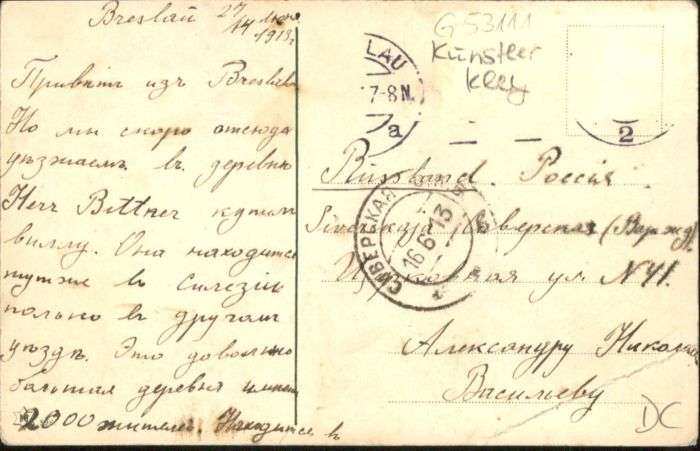 Breslau 27/14 июня
1913 г.
Привѣтъ изъ Breslau
Но мы скоро отсюда
уѣзжаемъ въ деревню
Herr Bittner купилъ
виллу. Она находится
тутже въ Силезіи
только въ другомъ
уѣздѣ. Это довольно
большая деревня имѣетъ
2000 жителей. Находится въ
G 53111
Künstler
Kley
LAU
7-8 N.
a
2
Russland. Россія
Siverskaja Сиверская (Варж.жд)
СИВЕРСКАЯ
16 6 13
Церковная ул. N 41.
Александру Никола
Васильеву
DC